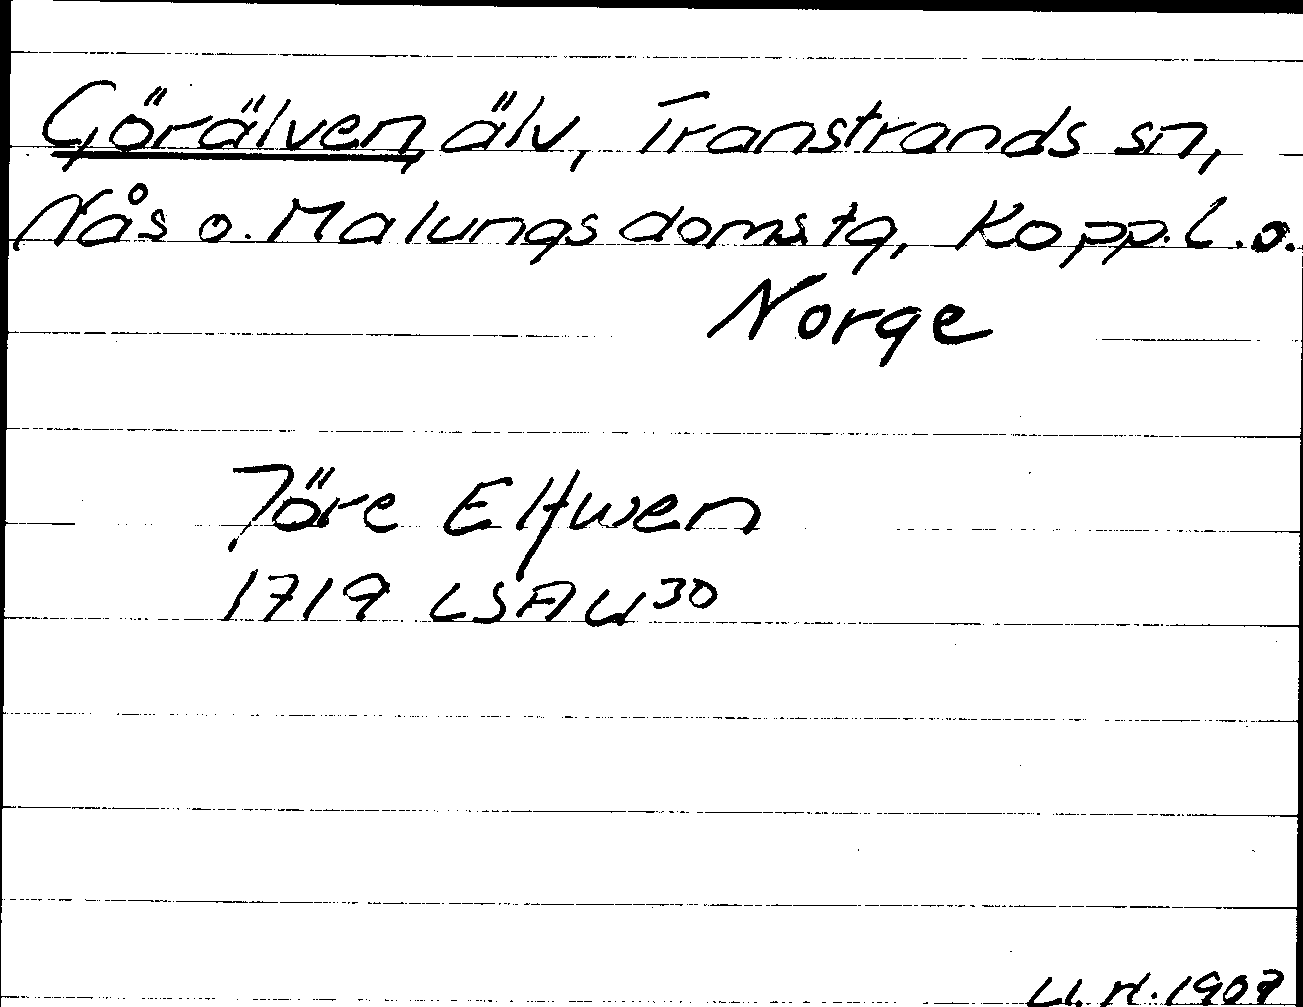 Görälven, älv, Transtrands sn,
Nås o. Malungs domstg, Kopp. l. o.
Norge
Jöre Elfwen
1719 LSA U 30